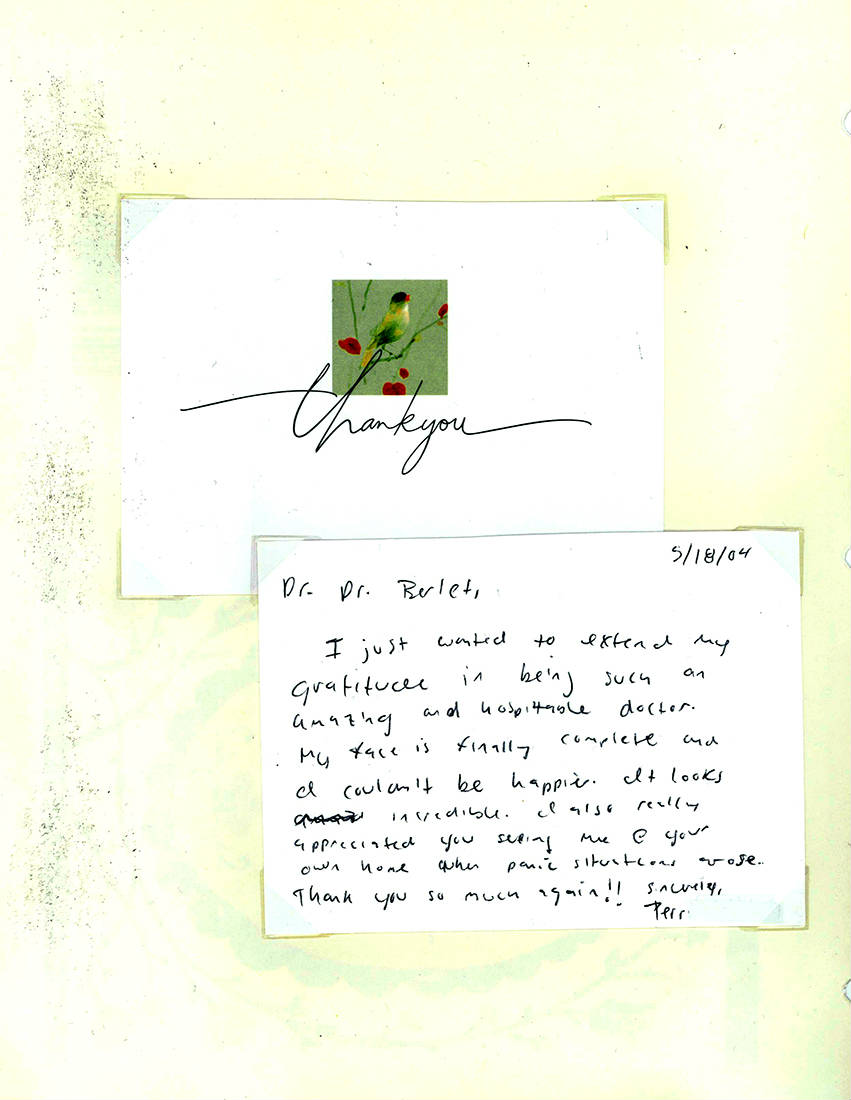 thankyou
5/18/04
Dr. Dr. Berlet,
I just wanted to extend my
gratitude in being such an
amazing and hospitable doctor.
My face is finally complete and
I couldn't be happier. It looks
incredible. I also really
appreciated you seeing me @ your
own home when panic situations arose.
Thank you so much again!! Sincerely,